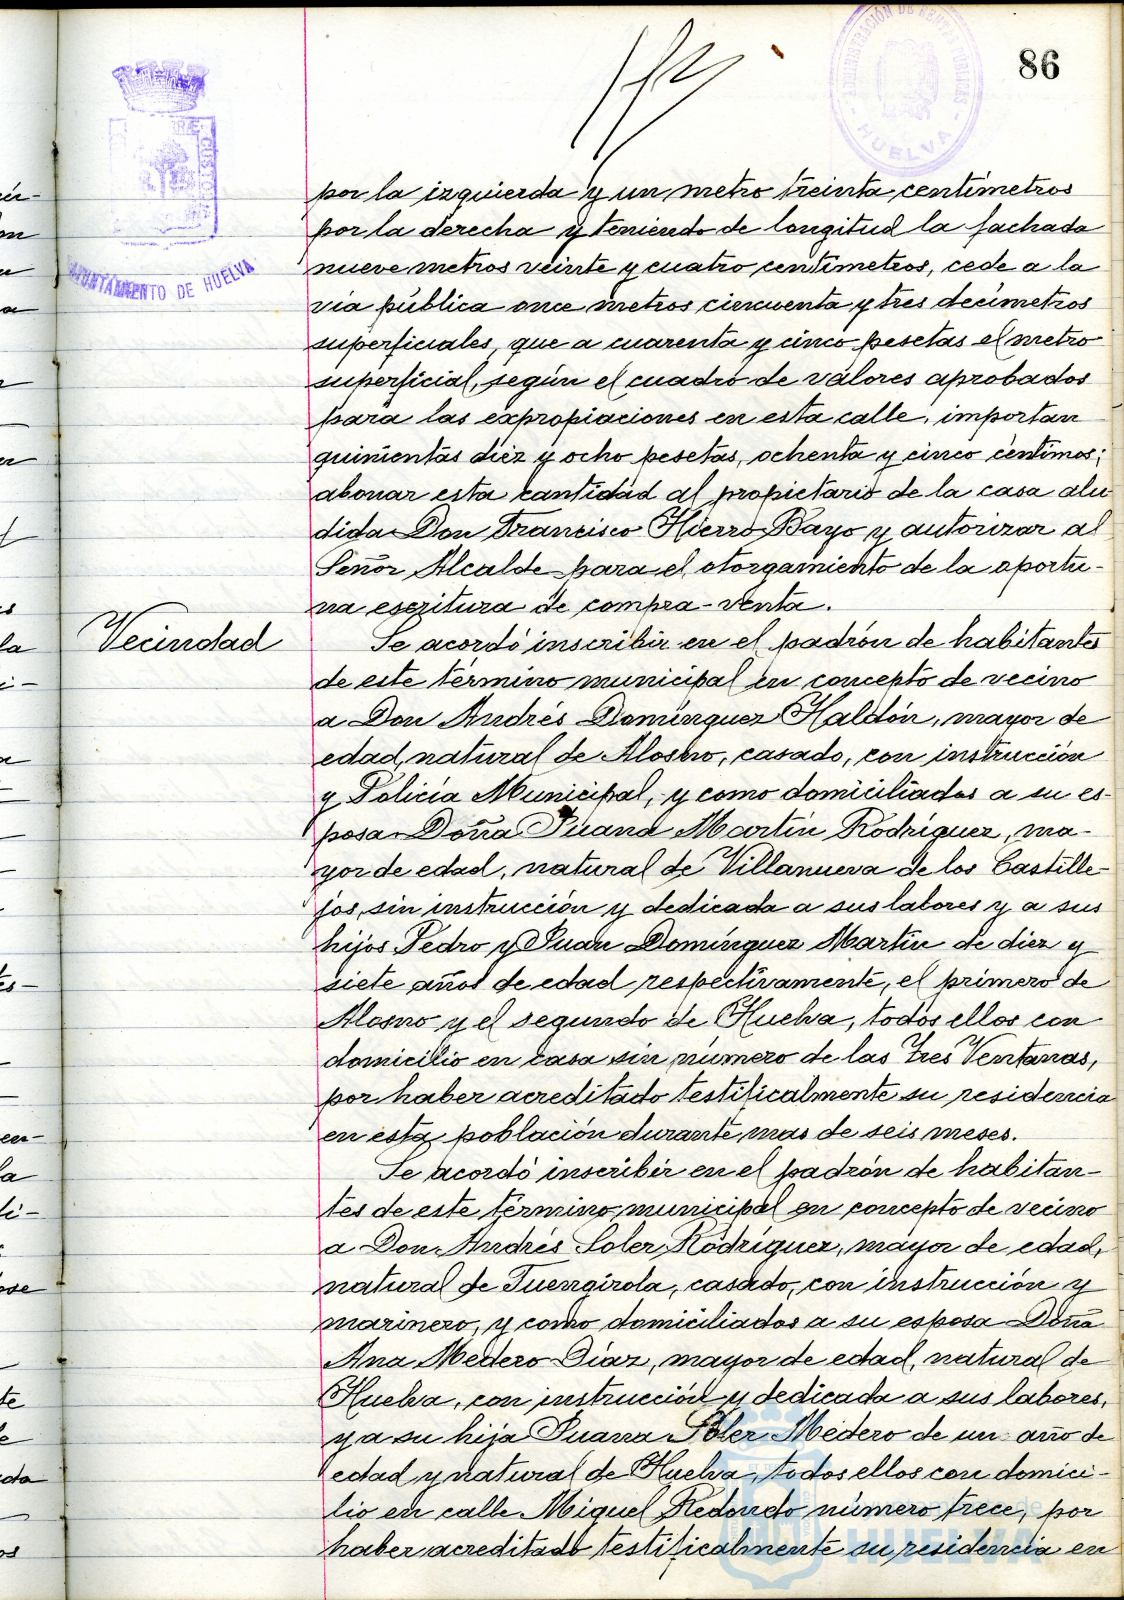 86
ADMINISTRACIÓN DE RENTAS PÚBLICAS
HUELVA
AYUNTAMIENTO DE HUELVA
por la izquierda y un metro treinta centímetros
por la derecha y teniendo de longitud la fachada
nueve metros veinte y cuatro centímetros, cede a la
vía pública once metros cincuenta y tres decímetros
superficiales, que a cuarenta y cinco pesetas el metro
superficial, según el cuadro de valores aprobados
para las expropiaciones en esta calle, importan
quinientas diez y ocho pesetas, ochenta y cinco céntimos;
abonar esta cantidad al propietario de la casa alu
dida Don Francisco Hierro Bayo y autorizar al
Señor Alcalde para el otorgamiento de la oportu-
na escritura de compra-venta.
Vecindad
Se acordó inscribir en el padrón de habitantes
de este término municipal en concepto de vecino
a Don Andrés Domínguez Haldón, mayor de
edad, natural de Alosno, casado, con instrucción
y Policía Municipal, y como domiciliados a su es-
posa Doña Juana Martín Rodríguez, ma-
yor de edad, natural de Villanueva de los Castille-
jos, sin instrucción y dedicada a sus labores y a sus
hijos Pedro y Juan Domínguez Martín de diez y
siete años de edad respectivamente, el primero de
Alosno y el segundo de Huelva, todos ellos con
domicilio en casa sin número de las Tres Ventanas,
por haber acreditado testificalmente su residencia
en esta población durante mas de seis meses.
Se acordó inscribir en el padrón de habitan-
tes de este término municipal en concepto de vecino
a Don Andrés Soler Rodríguez, mayor de edad,
natural de Fuengirola, casado, con instrucción y
marinero, y como domiciliados a su esposa Doña
Ana Medero Díaz, mayor de edad, natural de
Huelva, con instrucción y dedicada a sus labores,
y a su hija Juana Soler Medero de un año de
edad y natural de Huelva, todos ellos con domici-
lio en calle Miguel Redondo número trece, por
haber acreditado testificalmente su residencia en
HUELVA